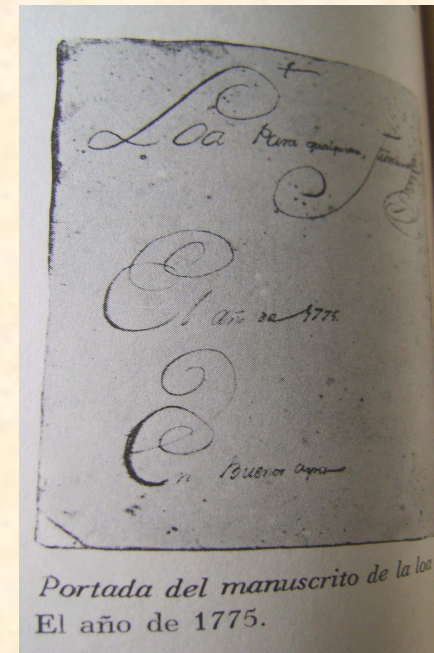 Loa Para qualquiera
El año de 1775
En Buenos ayres
Portada del manuscrito de la loa
El año de 1775.